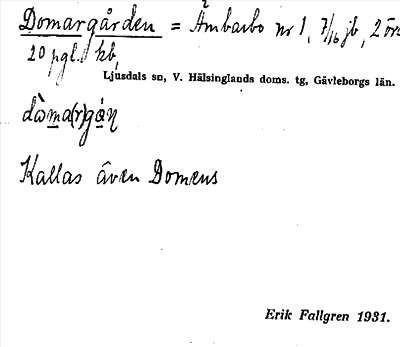 Domargården = Ämbarbo nr 1, 7/16 jb, 2 öre
20 pgl. kb,
Ljusdals sn, V. Hälsinglands doms. tg, Gävleborgs län.
dòma(r)gáṇ
Kallas även Domens
Erik Fallgren 1931.